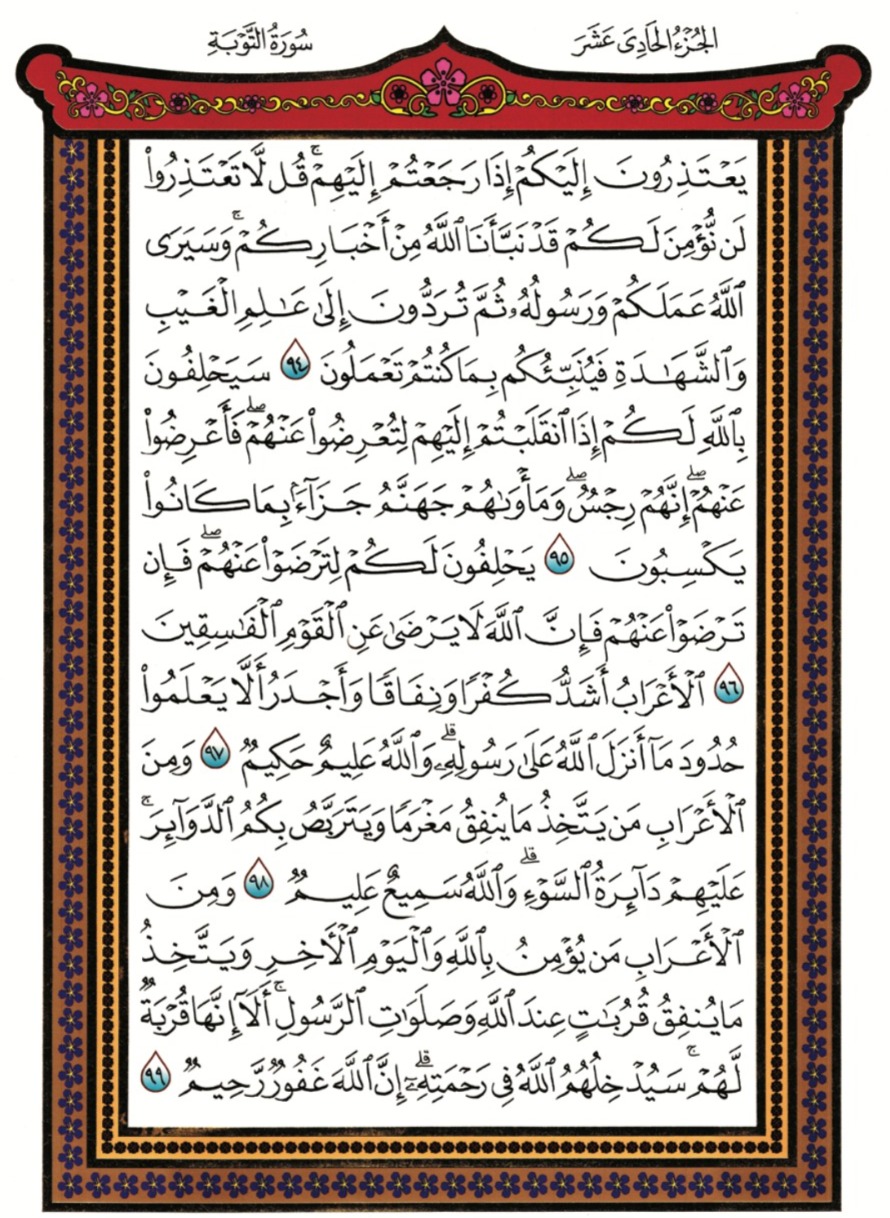 الجُزْءُ الحَادِىَ عَشَرَ
سُورَةُ التَّوْبَةِ
يَعْتَذِرُونَ إِلَيْكُمْ إِذَا رَجَعْتُمْ إِلَيْهِمْۚ قُل لَّا تَعْتَذِرُوا۟
لَن نُّؤْمِنَ لَكُمْ قَدْ نَبَّأَنَا ٱللَّهُ مِنْ أَخْبَارِكُمْۚ وَسَيَرَى
ٱللَّهُ عَمَلَكُمْ وَرَسُولُهُۥ ثُمَّ تُرَدُّونَ إِلَىٰ عَـٰلِمِ ٱلْغَيْبِ
وَٱلشَّهَـٰدَةِ فَيُنَبِّئُكُم بِمَا كُنتُمْ تَعْمَلُونَ ٩٤ سَيَحْلِفُونَ
بِٱللَّهِ لَكُمْ إِذَا ٱنقَلَبْتُمْ إِلَيْهِمْ لِتُعْرِضُوا۟ عَنْهُمْۖ فَأَعْرِضُوا۟
عَنْهُمْۖ إِنَّهُمْ رِجْسٌۖ وَمَأْوَىٰهُمْ جَهَنَّمُ جَزَآءًۢ بِمَا كَانُوا۟
يَكْسِبُونَ ٩٥ يَحْلِفُونَ لَكُمْ لِتَرْضَوْا۟ عَنْهُمْۖ فَإِن
تَرْضَوْا۟ عَنْهُمْ فَإِنَّ ٱللَّهَ لَا يَرْضَىٰ عَنِ ٱلْقَوْمِ ٱلْفَـٰسِقِينَ
٩٦ ٱلْأَعْرَابُ أَشَدُّ كُفْرًا وَنِفَاقًا وَأَجْدَرُ أَلَّا يَعْلَمُوا۟
حُدُودَ مَآ أَنزَلَ ٱللَّهُ عَلَىٰ رَسُولِهِۦۗ وَٱللَّهُ عَلِيمٌ حَكِيمٌ ٩٧ وَمِنَ
ٱلْأَعْرَابِ مَن يَتَّخِذُ مَا يُنفِقُ مَغْرَمًا وَيَتَرَبَّصُ بِكُمُ ٱلدَّوَآئِرَۚ
عَلَيْهِمْ دَآئِرَةُ ٱلسَّوْءِۗ وَٱللَّهُ سَمِيعٌ عَلِيمٌ ٩٨ وَمِنَ
ٱلْأَعْرَابِ مَن يُؤْمِنُ بِٱللَّهِ وَٱلْيَوْمِ ٱلْـَٔاخِرِ وَيَتَّخِذُ
مَا يُنفِقُ قُرُبَـٰتٍ عِندَ ٱللَّهِ وَصَلَوَٰتِ ٱلرَّسُولِۚ أَلَآ إِنَّهَا قُرْبَةٌ
لَّهُمْۚ سَيُدْخِلُهُمُ ٱللَّهُ فِى رَحْمَتِهِۦٓۗ إِنَّ ٱللَّهَ غَفُورٌ رَّحِيمٌ ٩٩